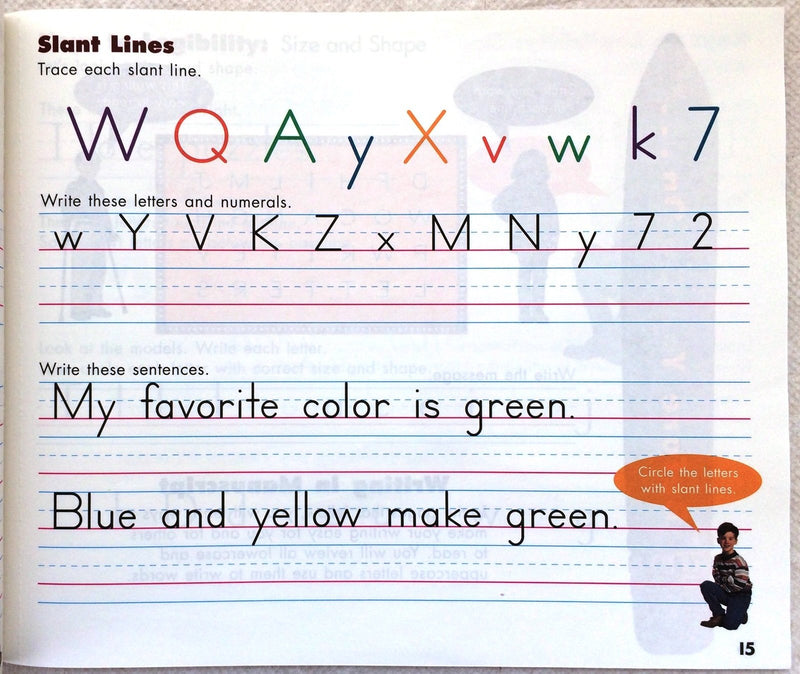 Slant Lines
Trace each slant line.
W Q A y X v w k 7
Write these letters and numerals.
w Y V K Z x M N y 7 2
Write these sentences.
My favorite color is green.
Circle the letters
with slant lines.
Blue and yellow make green.
15